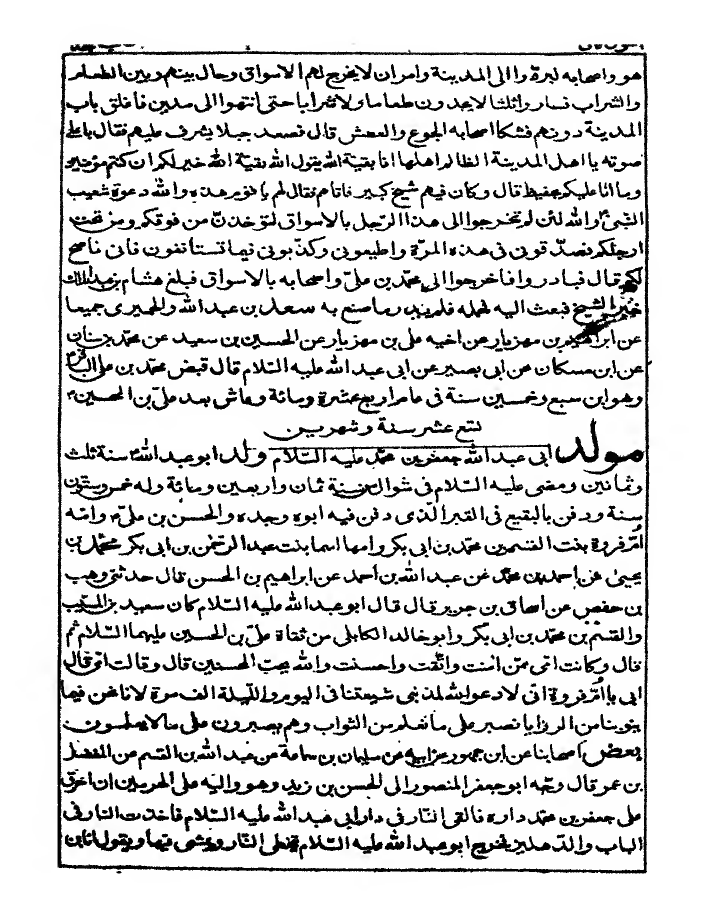 هو واصحابه ليردوا الى المدينة وامر ان لا يخرج لهم الاسواق وحال بينهم وبين الطعام
والشراب فساروا ثلثا لا يجدون طعاما ولا شرابا حتى انتهوا الى مدين فاغلق باب
المدينة دونهم فشكا اصحابه الجوع والعطش قال فصعد جبلا يشرف عليهم فقال باعلى
صوته يا اهل المدينة الظالم اهلها انا بقية الله يقول الله بقية الله خير لكم ان كنتم مؤمنين
وما انا عليكم بحفيظ قال وكان فيهم شيخ كبير فاتاهم فقال لهم يا قوم هذه والله دعوة شعيب
النبى والله لئن لم تخرجوا الى هذا الرجل بالاسواق لتؤخذن من فوقكم ومن تحت
ارجلكم فصدقونى فى هذه المرة واطيعونى وكذبونى فيما تستانفون فانى ناصح
لكم قال فبادروا فاخرجوا الى محمد بن على واصحابه بالاسواق فبلغ هشام بن عبد الملك
خبر الشيخ فبعث اليه فحمله فلم يدر ما صنع به سعد بن عبد الله والحميرى جميعا
عن ابراهيم بن مهزيار عن اخيه على بن مهزيار عن الحسين بن سعيد عن محمد بن سنان
عن ابن مسكان عن ابى بصير عن ابى عبد الله عليه السلام قال قبض محمد بن على الباقر
وهو ابن سبع وخمسين سنة فى عام اربع عشرة ومائة وعاش بعد على بن الحسين
تسع عشر سنة وشهرين
مولد ابى عبد الله جعفر بن محمد عليه السلام ولد ابو عبد الله سنة ثلث
وثمانين ومضى عليه السلام فى شوال من سنة ثمان واربعين ومائة وله خمس وستون
سنة ودفن بالبقيع فى القبر الذى دفن فيه ابوه وجده والحسن بن على وامه
ام فروة بنت القسم بن محمد بن ابى بكر وامها اسما بنت عبد الرحمن بن ابى بكر محمد بن
يحيى عن احمد بن محمد عن عبد الله بن احمد عن ابراهيم بن الحسن قال حدثنى وهب
بن حفص عن اسحاق بن جرير قال قال ابو عبد الله عليه السلام كان سعيد بن المسيب
والقسم بن محمد بن ابى بكر وابو خالد الكابلى من ثقاة على بن الحسين عليهما السلام ثم
قال وكانت امى ممن امنت واتقت واحسنت والله يحب المحسنين قال وقالت امى قال
ابى يا ام فروة انى لادعو الله لمذنبى شيعتنا فى اليوم والليلة الف مرة لانا نحن فيما
ينوبنا من الرزايا نصبر على ما نعلم من الثواب وهم يصبرون على ما لا يعلمون
بعض اصحابنا عن ابن جمهور عن ابيه عن سليمان بن سماعة عن عبد الله بن القسم عن المفضل
بن عمر قال وجه ابو جعفر المنصور الى الحسن بن زيد وهو واليه على الحرمين ان احرق
على جعفر بن محمد داره فالقى النار فى دار ابى عبد الله عليه السلام فاخذت النار فى
الباب والدهليز فخرج ابو عبد الله عليه السلام يتخطى النار ويمشى فيها ويقول انا بن